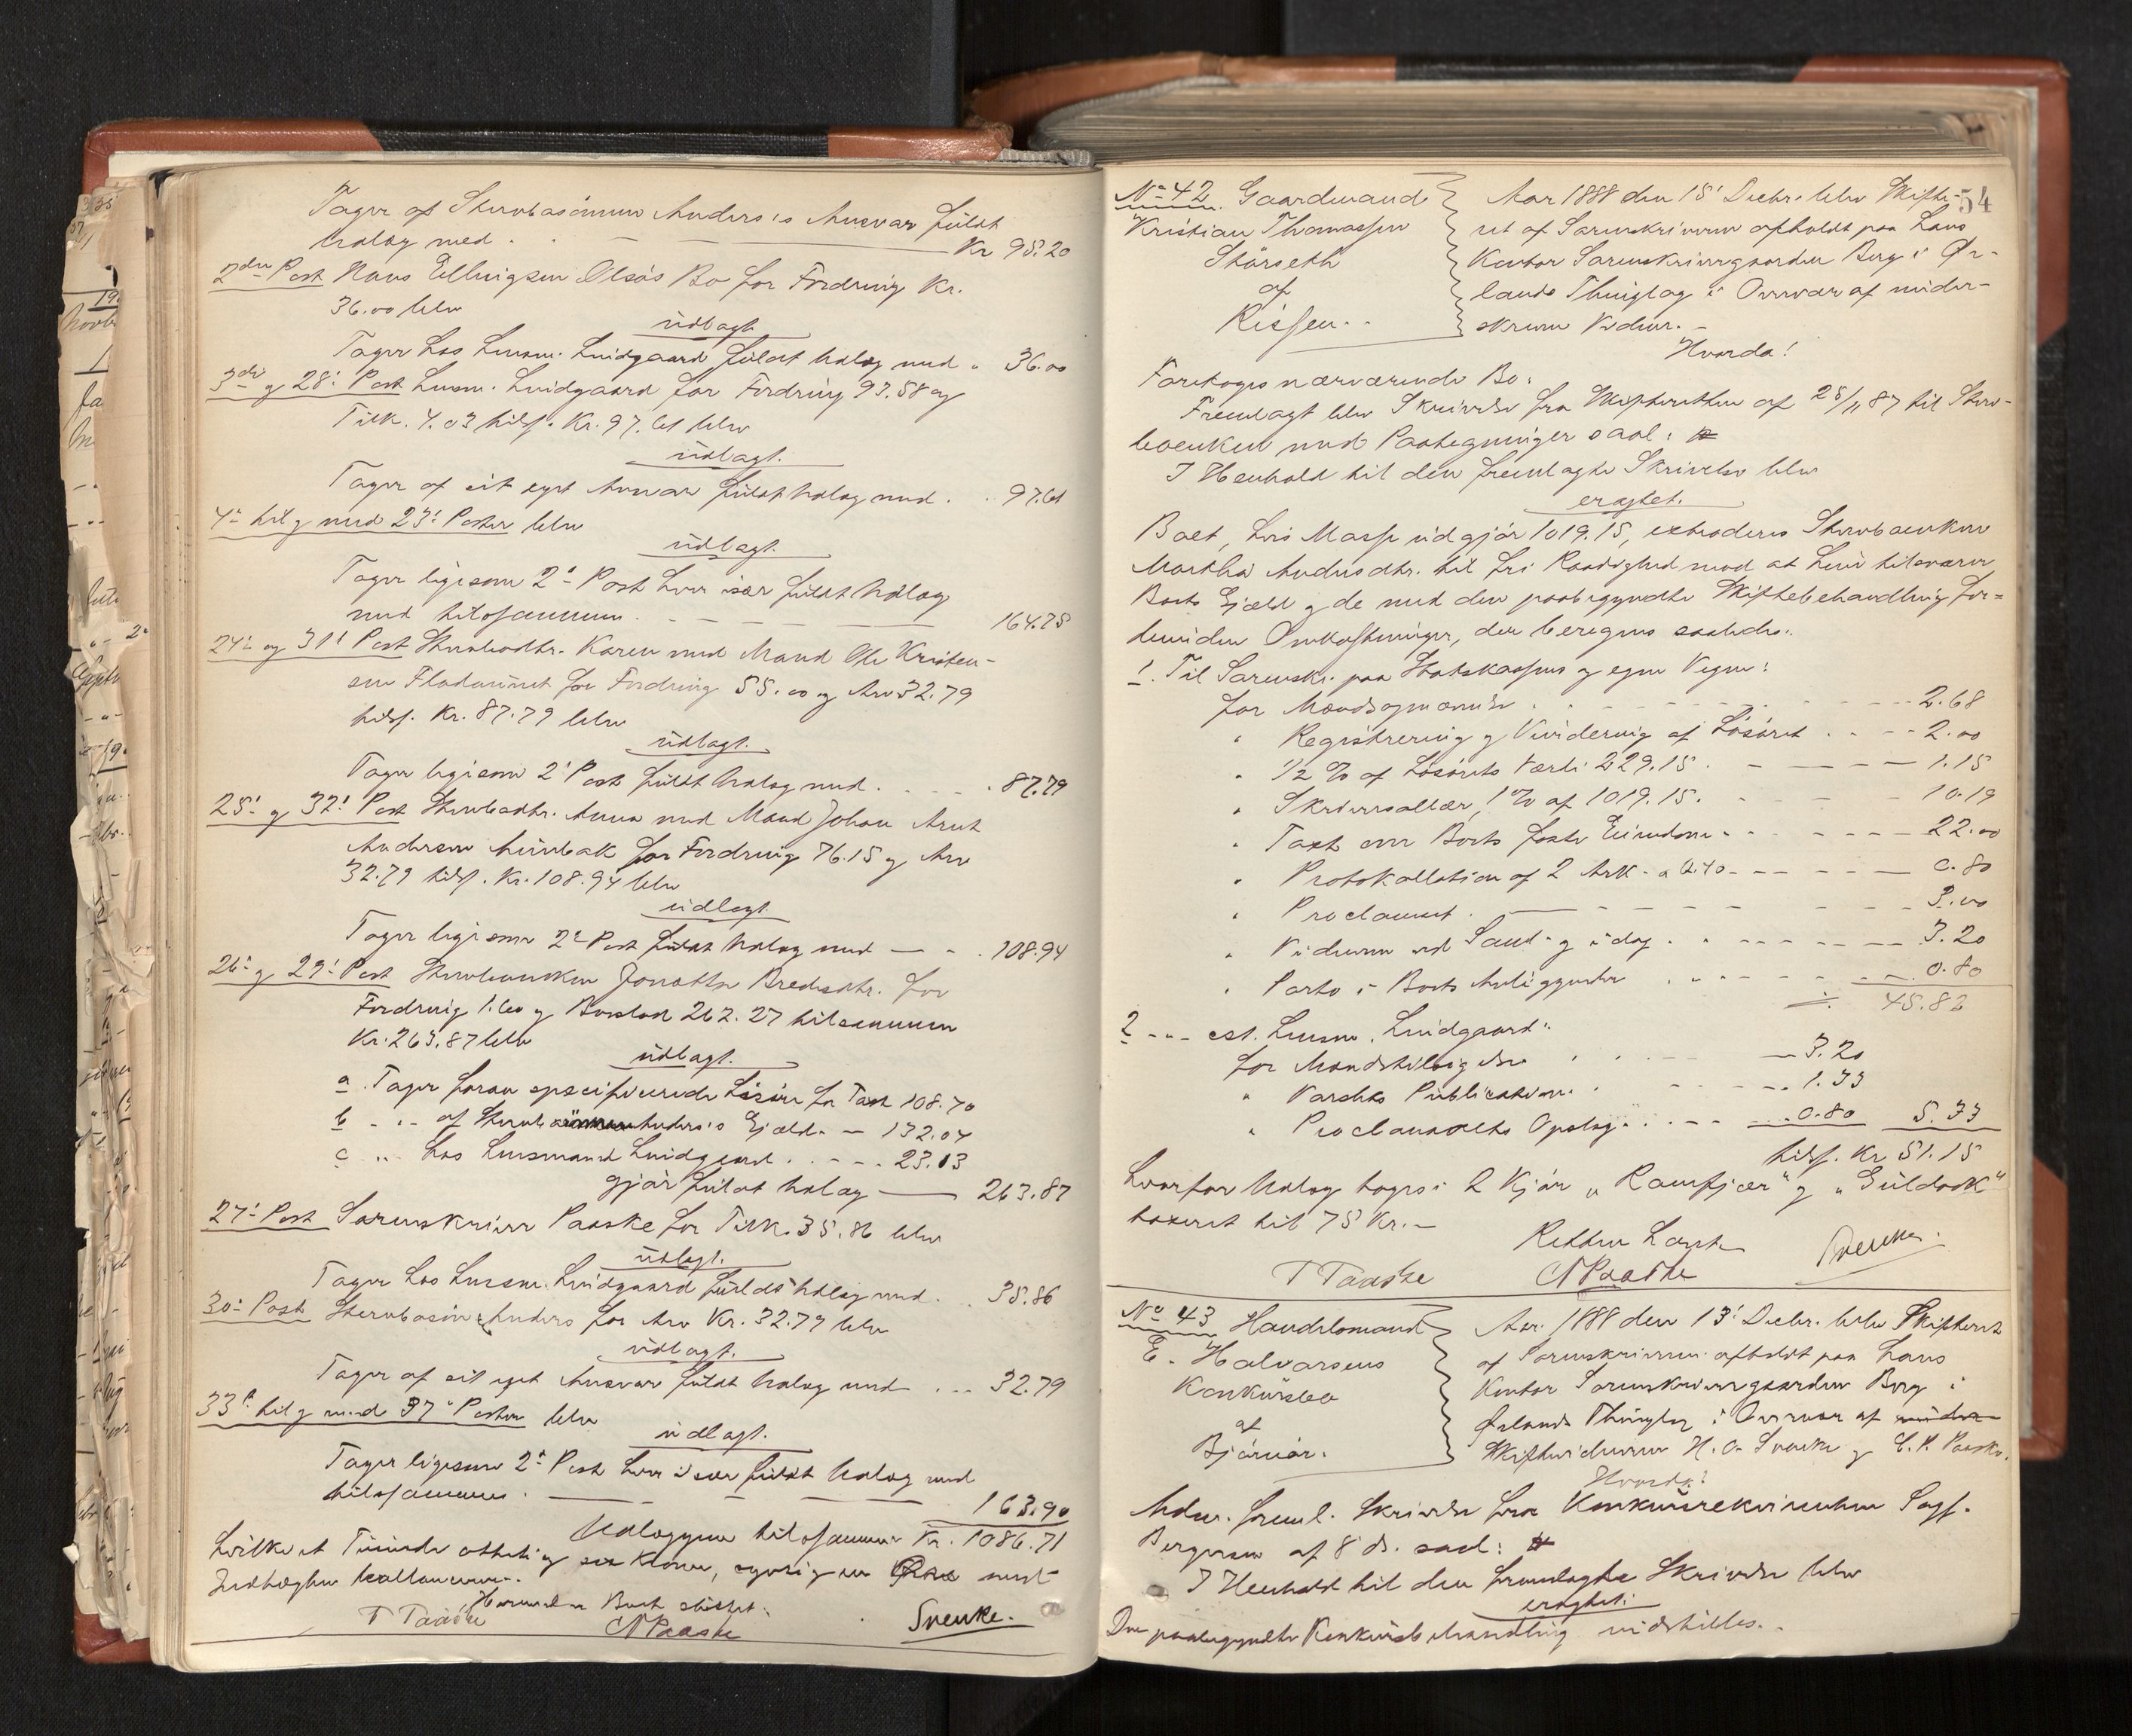 Tager af Stervbosönnen Anders's Ansvar fuldt
Udlæg med . . — — — Kr 95.20
2den Post Hans Ellingsen Olsös Bo for Fordring Kr.
36.00 blev
udlagt.
Tager hos Lensm. Lindgaard fuldt Udlæg med . 36.00
3die og 28: Post Lensm. Lindgaard for Fordring 93.58 og
Tilk. 4.03 tils. Kr. 97.61 blev
udlagt.
Tager af sit eget Ansvar fuldt Udlæg med . . 97.61
4: til og med 23: Poster blev
udlagt.
Tager ligesom 2: Post hver især fuldt Udlæg
med tilsammen. — — — 164.75
24: og 31: Post Stervbodtr. Karen med Mand Ole Kristen-
sen for Fordring 55.00 og Arv 32.79
tils. Kr. 87.79 blev
udlagt.
Tager ligesom 2: Post fuldt Udlæg med . . . 87.79
25: og 32: Post Stervbodtr. Anna med Mand Johan Arnt
Andersen for Fordring 76.15 og Arv
32.79 tils. Kr. 108.94 blev
udlagt.
Tager ligesom 2: Post fuldt Udlæg med — . 108.94
26: og 29: Post Stervboenken Jonetta for
Fordring 1.60 og Boslod 262.27 tilsammen
Kr. 263.87 blev
udlagt.
a. Tager foran specificerede Lösöre for Taxt 108.70
b " .. af Stervbosönnen Anders's Gjæld. — 132.04
c " hos Lensmand Lindgaard . . — 23.13
gjör fuldt Udlæg — 263.87
27: Post Sorenskriver Paaske for Tilk. 35.86 blev
udlagt.
Tager hos Lensm. Lindgaard fuldt Udlæg med . . 35.86
30: Post Stervbosön Anders for Arv Kr. 32.79 blev
udlagt.
Tager af sit eget Ansvar fuldt Udlæg med ... 32.79
33: til og med 37: Poster blev
udlagt.
Tager ligesom 2: Post hver især fuldt Udlæg med
tilsammen. — — — 163.90
Udlæggene tilsammen Kr. 1086.71
hvilket Tusinde otteti og sex Kroner, syvti og en Öre med
Indtægten ballancerer.
Hermed er Boet sluttet.
T Paaske CN Paaske Svenke.
54
No 42. Gaardmand
Kristian Thomassen
Störseth
af
Rissen..
Aar 1888 den 15' Decbr. blev Skifte-
ret af Sorenskriveren afholdt paa hans
Kontor Sorenskrivergaarden Berg i Ör-
lands Thinglag i Overvær af under-
skrevne Vidner. —
Hvorda!
Foretoges nærværende Bo:
Fremlagt blev Skrivelse fra Skifteretten af 25/11 87 til Sterv-
boenken med Paategninger saal:
I Henhold til den fremlagte Skrivelse blev
eragtet.
Boet, hvis Masse udgjör 1019.15, extraderes Stervboenken
Martha Andersdtr. til fri Raadighed mod at hun tilsvarer
Boets Gjæld og de med den paabegyndte Skiftebehandling for-
bundne Omkostninger, der beregnes saaledes:
1. Til Sorenskr. paa Statskassens og egne Vegne:
for Mandsopnævnelse . . . . 2.68
" Registrering og Vurdering af Lösöret . . — 2.00
" 1/2 % af Lösörets Værdi 229.15 . — — 1.15
" Skriversallær, 1 % af 1019.15. — — 10.19
" Taxt over Boets faste Eiendom . . — — 22.00
" Protokollation af 2 Ark. a 0.40 — — — 0.80
" Proclamet . — — — 3.00
" Vidnerne ved Saml. og idag . . — — 3.20
" Porto i Boets Anliggender . . . — — 0.80
÷ 45.82
2 - - - cst. Lensm. Lindgaard:
for Mandstilsigelse . . . — 3.20
" Varslets Publication. . . — 1.33
" Proclamaets Opslag. . . — 0.80 5.33
tils. Kr 51.15
hvorfor Udlæg toges i 2 Kjör „Ramfjær" og „Guldook"
taxeret til 75 Kr. —
Retten hævet
T Paaske CN Paaske Svenke.
No 43 Handelsmand
E. Halvorsens
Konkursbo
af
Bjørnör.
Aar 1888 den 13' Decbr. blev Skifteret
af Sorenskriveren afholdt paa hans
Kontor Sorenskrivergaarden Berg i
Ørlands Thinglag i Overvær af under-
Skiftevidnerne H. O. Svenke og C. N. Paaske.
Hvorda!
Adm. freml. Skrivelse fra Konkursrekvirenten Sagf.
Bergersen af 8 ds. saal:
I Henhold til den fremlagte Skrivelse blev
eragtet:
Den paabegyndte Konkursbehandling indstilles. .